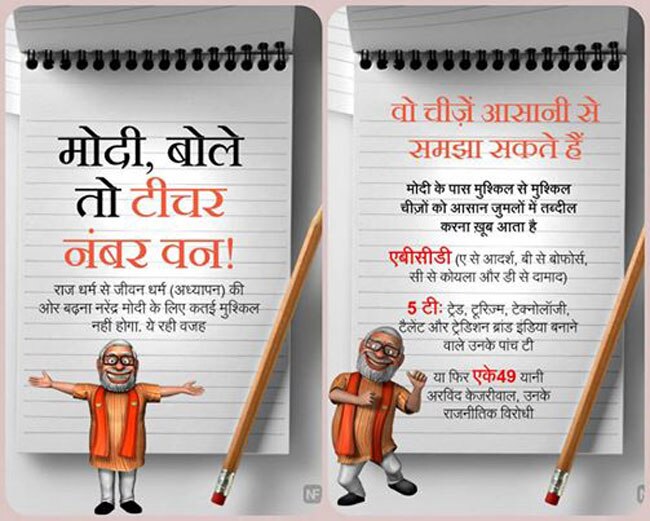 मोदी, बोले
तो टीचर
नंबर वन!
राज धर्म से जीवन धर्म (अध्यापन) की
ओर बढ़ना नरेंद्र मोदी के लिए कतई मुश्किल
नहीं होगा. ये रही वजह
NF
वो चीज़ें आसानी से
समझा सकते हैं
मोदी के पास मुश्किल से मुश्किल
चीज़ों को आसान जुमलों में तब्दील
करना ख़ूब आता है
एबीसीडी (ए से आदर्श, बी से बोफोर्स,
सी से कोयला और डी से दामाद)
5 टीः ट्रेड, टूरिज्म, टेक्नोलॉजी,
टैलेंट और ट्रेडिशन ब्रांड इंडिया बनाने
वाले उनके पांच टी
या फिर एके49 यानी
अरविंद केजरीवाल, उनके
राजनीतिक विरोधी
NF